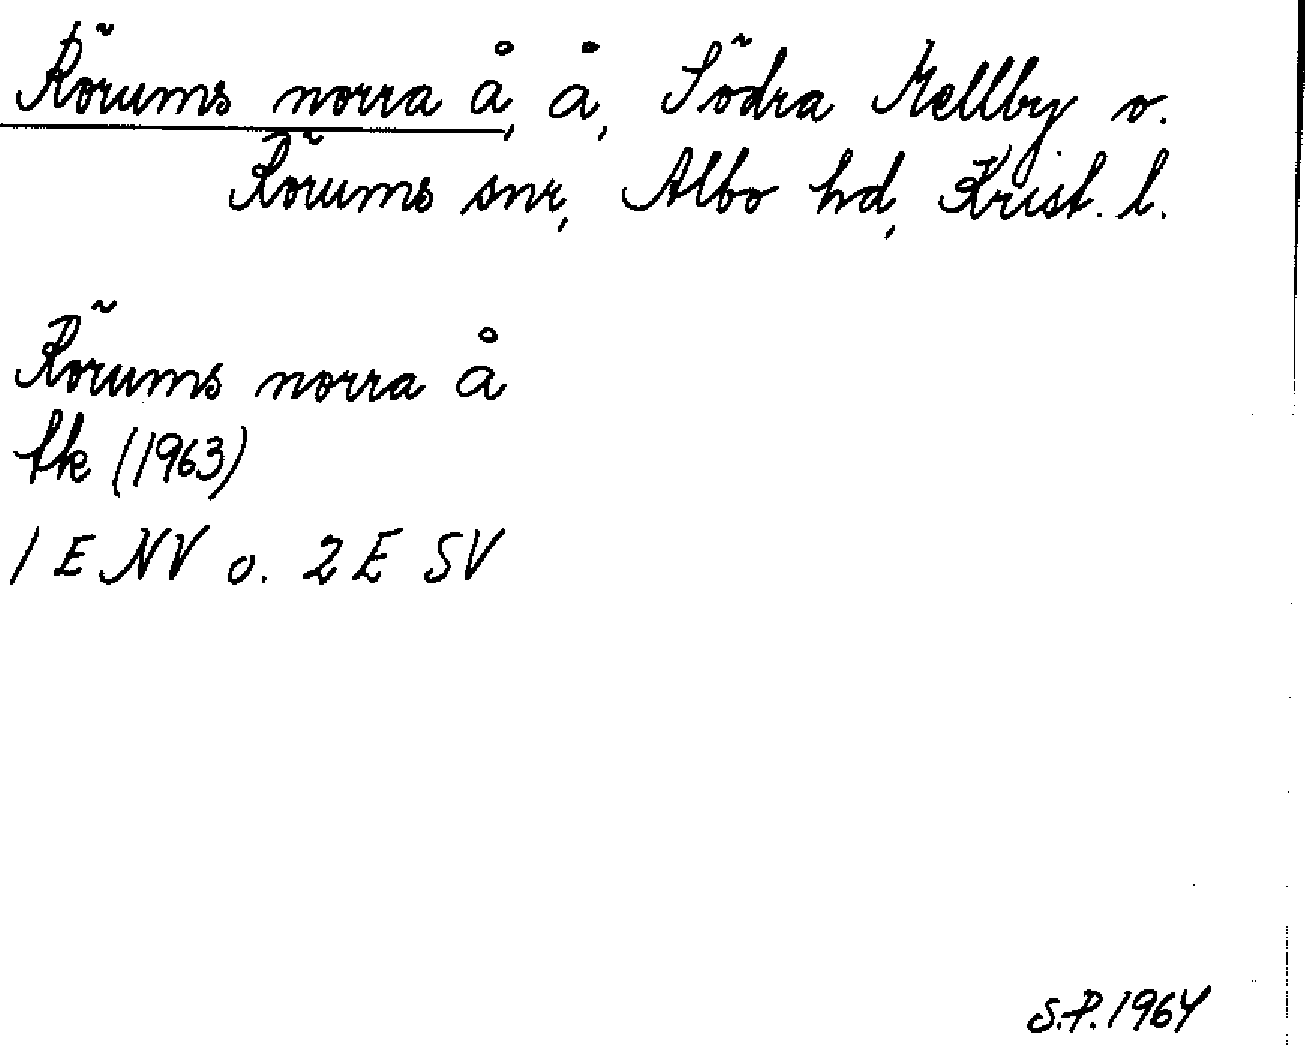 Rörums norra å, å, Södra Mellby o.
Rörums snr, Albo hd, Krist. l.
Rörums norra å
tk (1963)
1 E NV o. 2 E SV
S.P. 1964